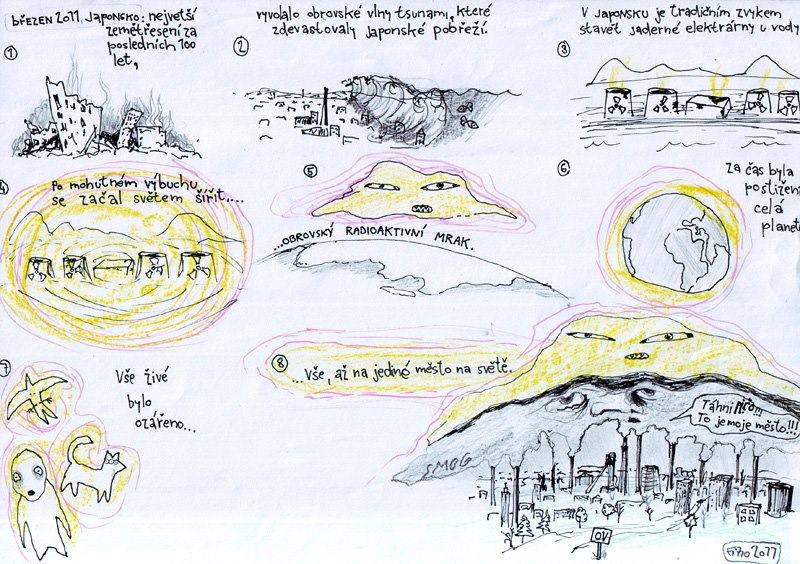 ①
BŘEZEN 2011, JAPONSKO: největší
zemětřesení za
posledních 100
let,
②
vyvolalo obrovské vlny tsunami, které
zdevastovaly japonské pobřeží.
③
V JAPONSKU je tradičním zvykem
stavět jaderné elektrárny u vody
4
Po mohutném výbuchu
se začal světem šířit....
⑤
...OBROVSKÝ RADIOAKTIVNÍ MRAK.
⑥
Za čas byla
postižena
celá
planeta
⑦
Vše živé
bylo
ozářeno...
⑧
...Vše, až na jediné město na světě.
Táhni
To je moje město!!!
SMOG
OV
2011